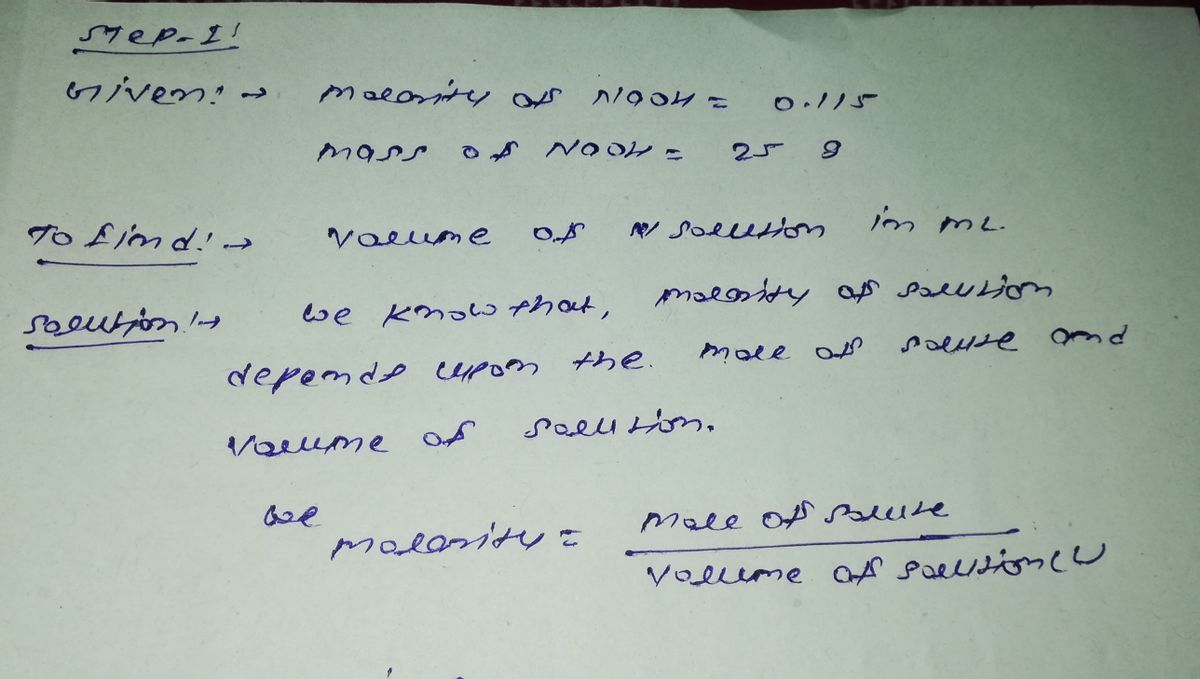 Step-I:
Given:→ molarity of NaOH = 0.115
mass of NaOH = 25 g
To find:→ volume of solution in mL.
solution:→ we know that, molarity of solution
depends upon the mole of solute and
volume of solution.
we molarity = mole of solute
volume of solution (L)